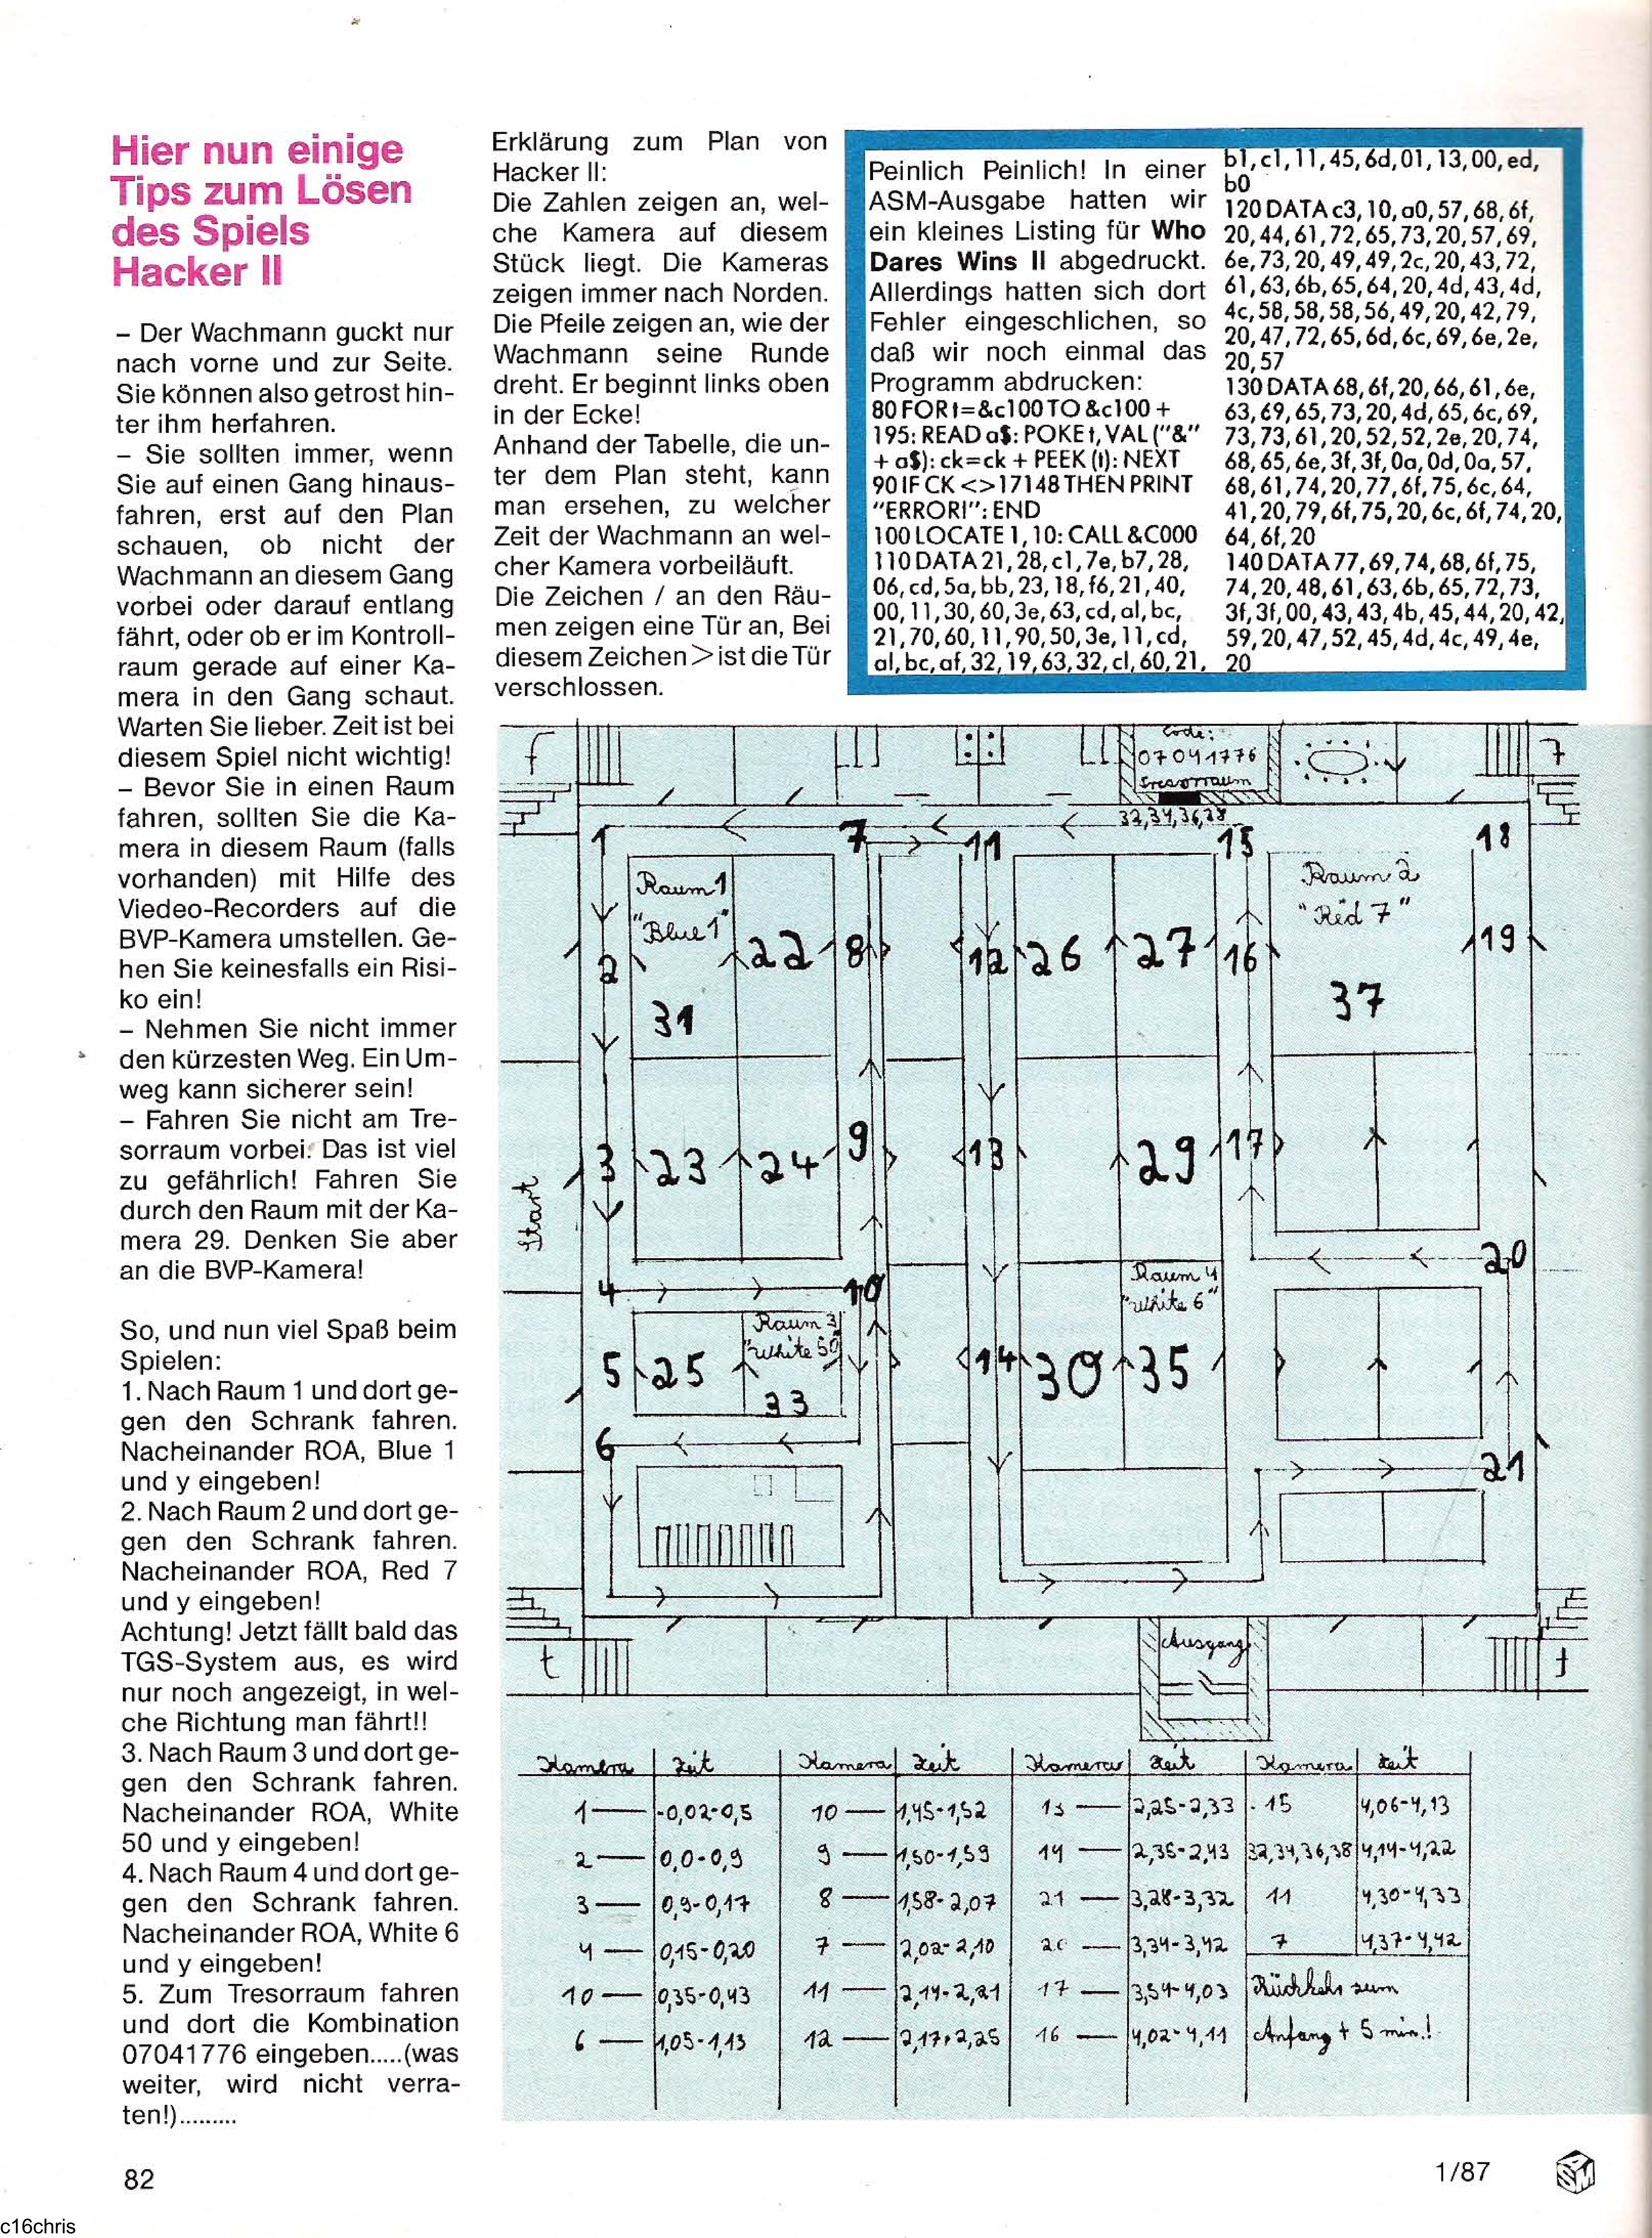 Hier nun einige
Tips zum Lösen
des Spiels
Hacker II
– Der Wachmann guckt nur
nach vorne und zur Seite.
Sie können also getrost hin-
ter ihm herfahren.
– Sie sollten immer, wenn
Sie auf einen Gang hinaus-
fahren, erst auf den Plan
schauen, ob nicht der
Wachmann an diesem Gang
vorbei oder darauf entlang
fährt, oder ob er im Kontroll-
raum gerade auf einer Ka-
mera in den Gang schaut.
Warten Sie lieber. Zeit ist bei
diesem Spiel nicht wichtig!
– Bevor Sie in einen Raum
fahren, sollten Sie die Ka-
mera in diesem Raum (falls
vorhanden) mit Hilfe des
Viedeo-Recorders auf die
BVP-Kamera umstellen. Ge-
hen Sie keinesfalls ein Risi-
ko ein!
– Nehmen Sie nicht immer
den kürzesten Weg. Ein Um-
weg kann sicherer sein!
– Fahren Sie nicht am Tre-
sorraum vorbei. Das ist viel
zu gefährlich! Fahren Sie
durch den Raum mit der Ka-
mera 29. Denken Sie aber
an die BVP-Kamera!
So, und nun viel Spaß beim
Spielen:
1. Nach Raum 1 und dort ge-
gen den Schrank fahren.
Nacheinander ROA, Blue 1
und y eingeben!
2. Nach Raum 2 und dort ge-
gen den Schrank fahren.
Nacheinander ROA, Red 7
und y eingeben!
Achtung! Jetzt fällt bald das
TGS-System aus, es wird
nur noch angezeigt, in wel-
che Richtung man fährt!!
3. Nach Raum 3 und dort ge-
gen den Schrank fahren.
Nacheinander ROA, White
50 und y eingeben!
4. Nach Raum 4 und dort ge-
gen den Schrank fahren.
Nacheinander ROA, White 6
und y eingeben!
5. Zum Tresorraum fahren
und dort die Kombination
07041776 eingeben.....(was
weiter, wird nicht verra-
ten!).........
Erklärung zum Plan von
Hacker II:
Die Zahlen zeigen an, wel-
che Kamera auf diesem
Stück liegt. Die Kameras
zeigen immer nach Norden.
Die Pfeile zeigen an, wie der
Wachmann seine Runde
dreht. Er beginnt links oben
in der Ecke!
Anhand der Tabelle, die un-
ter dem Plan steht, kann
man ersehen, zu welcher
Zeit der Wachmann an wel-
cher Kamera vorbeiläuft.
Die Zeichen / an den Räu-
men zeigen eine Tür an, Bei
diesem Zeichen > ist die Tür
verschlossen.
Peinlich Peinlich! In einer
ASM-Ausgabe hatten wir
ein kleines Listing für Who
Dares Wins II abgedruckt.
Allerdings hatten sich dort
Fehler eingeschlichen, so
daß wir noch einmal das
Programm abdrucken:
80 FOR t=&c100 TO &c100 +
195: READ a$: POKE t, VAL ("&"
+ a$): ck=ck + PEEK (t): NEXT
90 IF CK <>17148 THEN PRINT
"ERROR!": END
100 LOCATE 1, 10: CALL &C000
110 DATA 21, 28, c1, 7e, b7, 28,
06, cd, 5a, bb, 23, 18, f6, 21, 40,
00, 11, 30, 60, 3e, 63, cd, al, bc,
21, 70, 60, 11, 90, 50, 3e, 11, cd,
al, bc, af, 32, 19, 63, 32, cl, 60, 21,
b1, c1, 11, 45, 6d, 01, 13, 00, ed,
b0
120 DATA c3, 10, a0, 57, 68, 6f,
20, 44, 61, 72, 65, 73, 20, 57, 69,
6e, 73, 20, 49, 49, 2c, 20, 43, 72,
61, 63, 6b, 65, 64, 20, 4d, 43, 4d,
4c, 58, 58, 58, 56, 49, 20, 42, 79,
20, 47, 72, 65, 6d, 6c, 69, 6e, 2e,
20, 57
130 DATA 68, 6f, 20, 66, 61, 6e,
63, 69, 65, 73, 20, 4d, 65, 6c, 69,
73, 73, 61, 20, 52, 52, 2e, 20, 74,
68, 65, 6e, 3f, 3f, 0a, 0d, 0a, 57,
68, 61, 74, 20, 77, 6f, 75, 6c, 64,
41, 20, 79, 6f, 75, 20, 6c, 6f, 74, 20,
64, 6f, 20
140 DATA 77, 69, 74, 68, 6f, 75,
74, 20, 48, 61, 63, 6b, 65, 72, 73,
3f, 3f, 00, 43, 43, 4b, 45, 44, 20, 42,
59, 20, 47, 52, 45, 4d, 4c, 49, 4e,
20
f
Code:
07041776
Tresorraum
7
32,34,36,38
1 7 11 15 18
Raum 1
"Blue 1"
Raum 2
"Red 7"
2 22 8 12 26 27 16 19
31 37
3 23 24 9 13 29 17
Start
4 10 20
Raum 3
"White 50"
Raum 4
"White 6"
5 25 33 14 30 35
6 21
t
Ausgang
f
Kamera Zeit Kamera Zeit Kamera Zeit Kamera Zeit
1 — -0,02-0,5 10 — 1,45-1,52 13 — 2,25-2,33 15 4,06-4,13
2 — 0,0-0,9 9 — 1,50-1,59 14 — 2,35-2,43 32,34,36,38 4,14-4,22
3 — 0,9-0,17 8 — 1,58-2,07 21 — 3,28-3,32 11 4,30-4,33
4 — 0,15-0,20 7 — 2,02-2,10 20 — 3,34-3,42 7 4,37-4,42
10 — 0,35-0,43 11 — 2,14-2,21 17 — 3,54-4,03 Rückkehr zum
6 — 1,05-1,13 12 — 2,17-2,25 16 — 4,02-4,11 Anfang + 5 min.!
82
1/87
ASM
c16chris